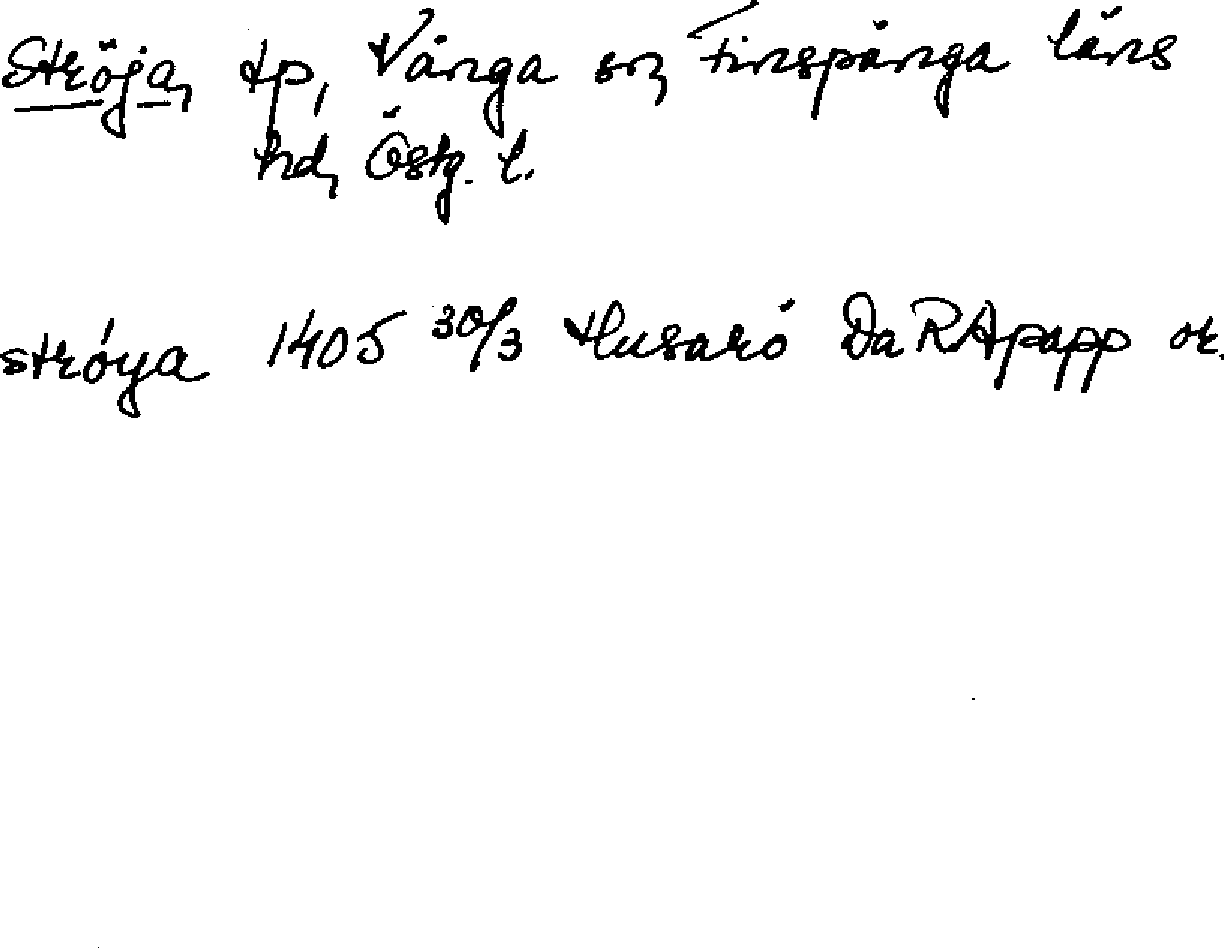 Ströja, tp, Vånga sn, Finspånga läns
hd, Östg. l.
ströya 1405 30/3 Husarö Da RApapp or.